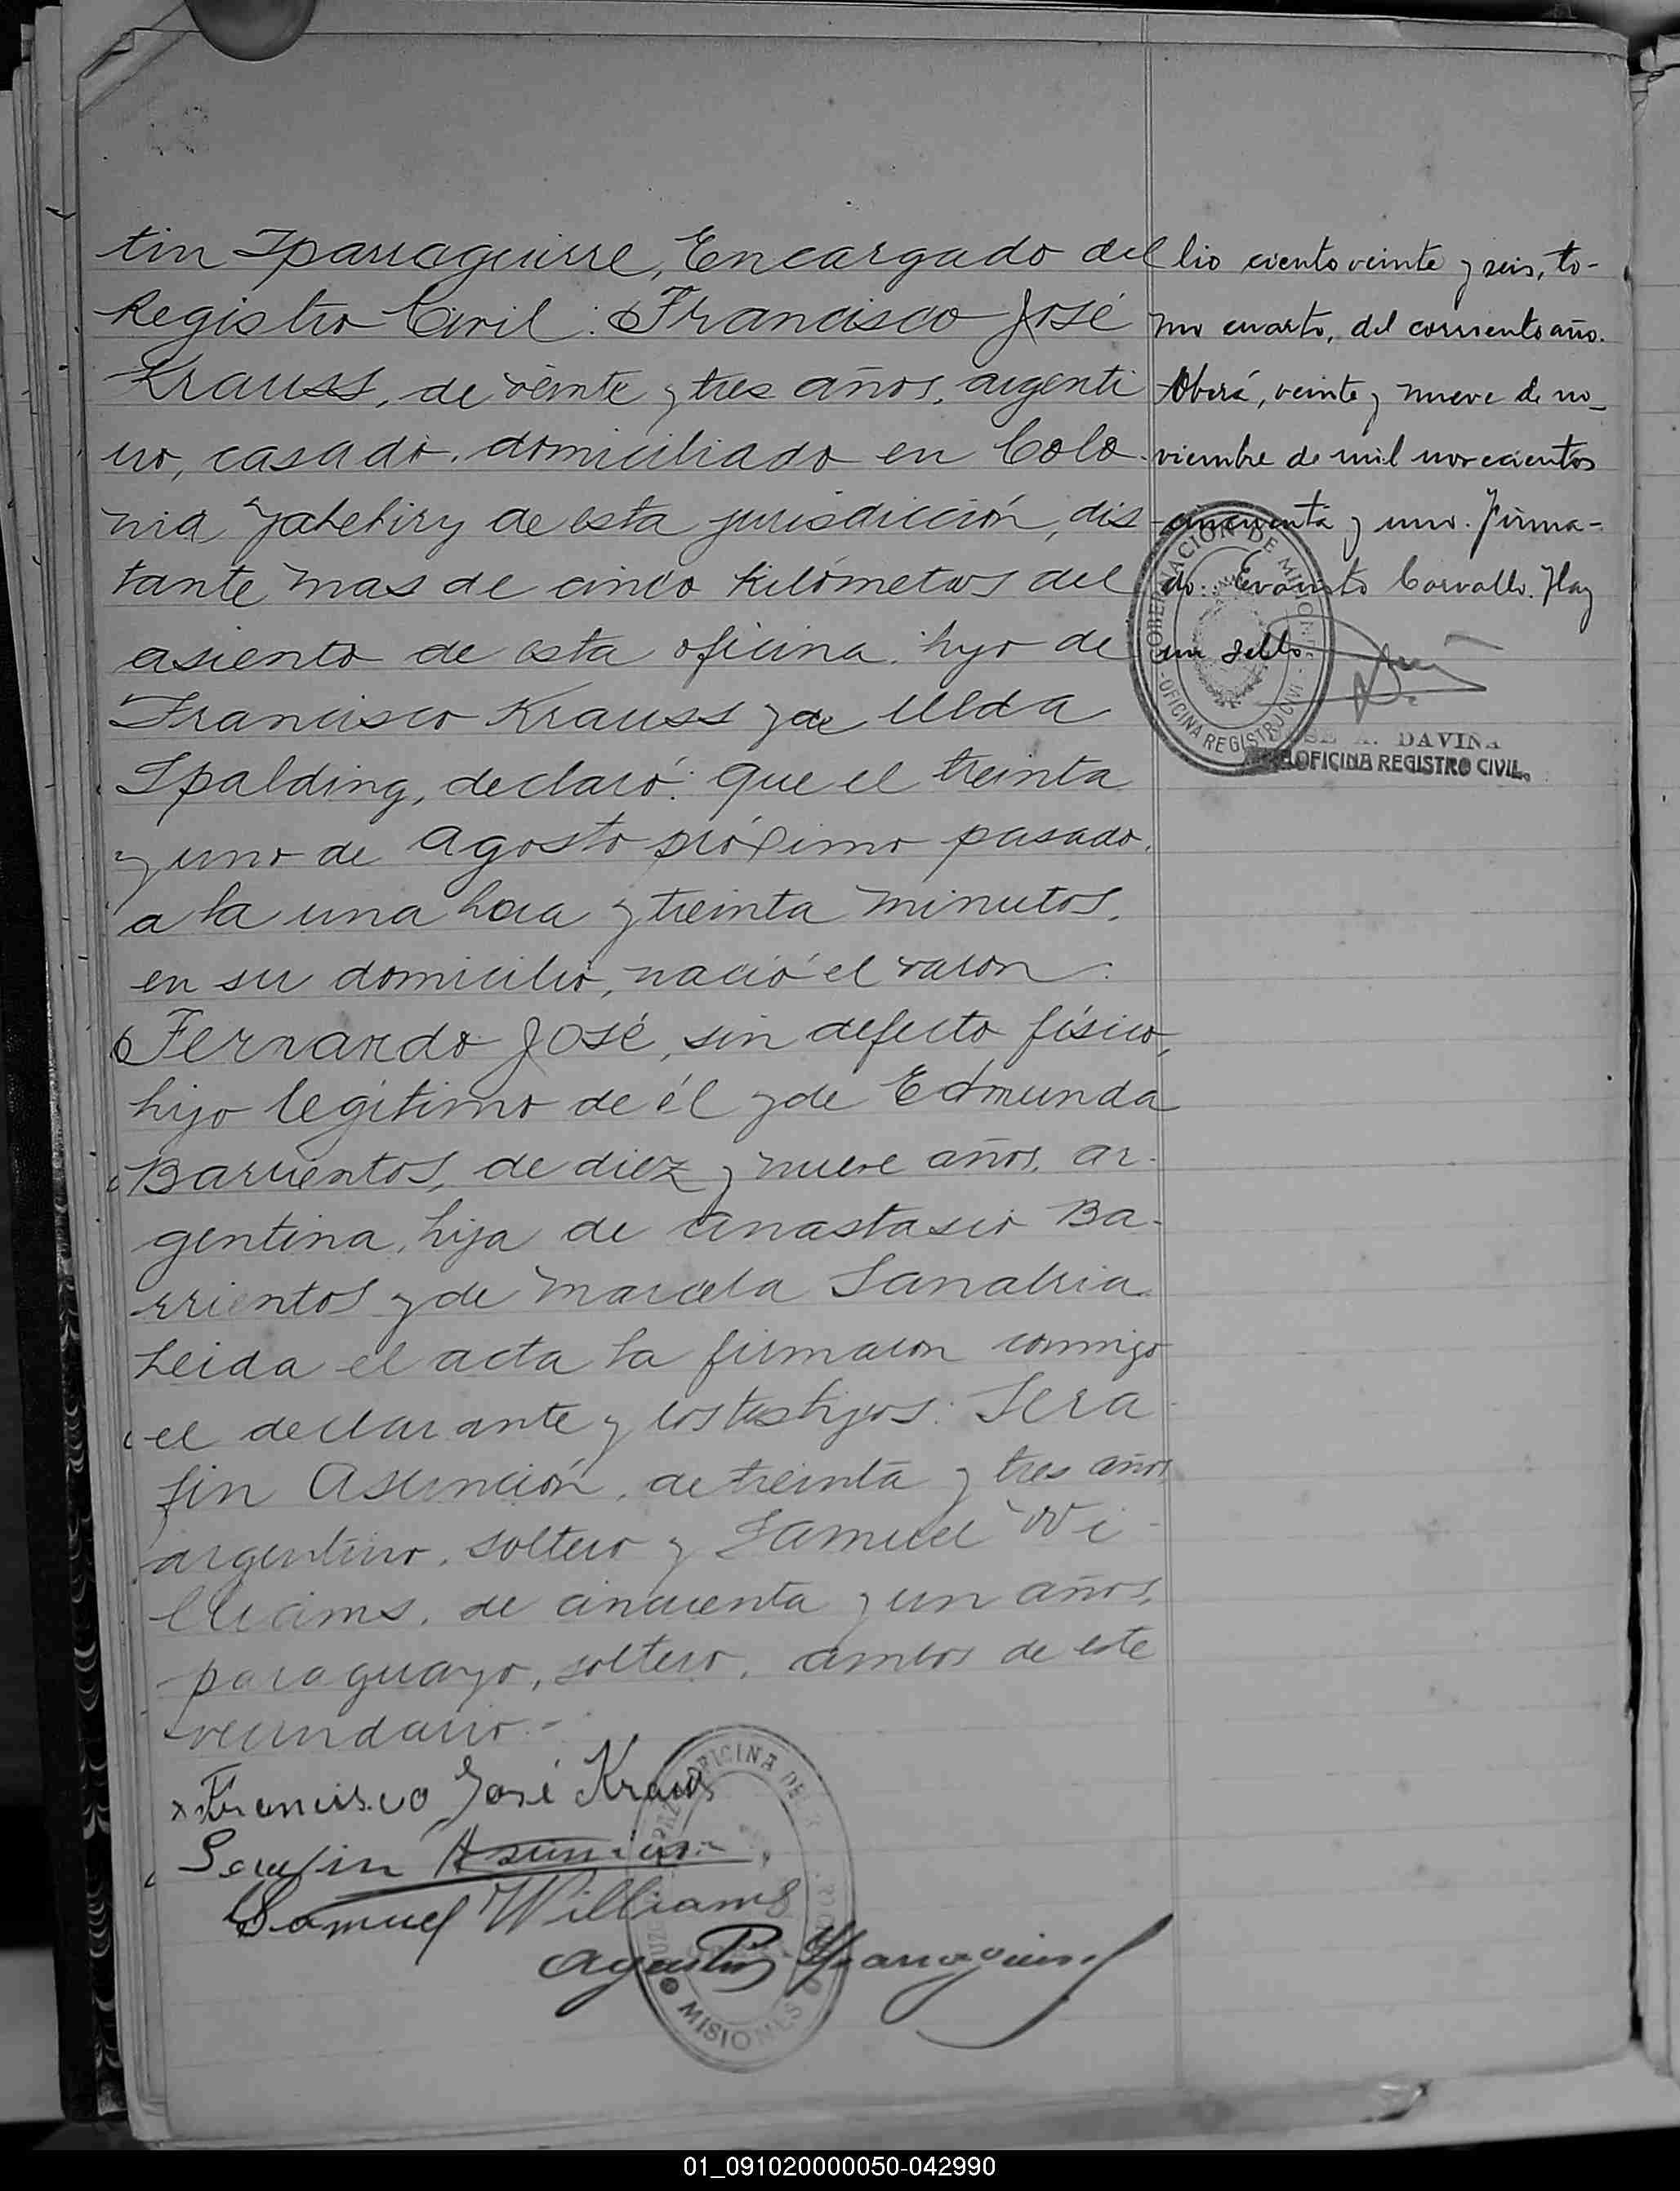 tin Yparraguirre, Encargado del
Registro Civil: Francisco José
Krauss, de veinte y tres años, argenti
no, casado, domiciliado en Colo
nia Yabebiry de esta jurisdicción, dis
tante mas de cinco kilómetros del
asiento de esta oficina, hijo de
Francisco Krauss y de Ulda
Spalding, declaró: Que el treinta
y uno de Agosto próximo pasado,
a la una hora y treinta minutos,
en su domicilio, nació el varon:
Fernando José, sin defecto físico,
hijo legítimo de él y de Edmunda
Barrientos, de diez y nueve años, ar-
gentina, hija de Anastasio Ba-
rrientos y de Marcela Sanabria.
Leida el acta la firmaron conmigo
el declarante y los testigos: Sera
fin Asunción, de treinta y tres años
argentino, soltero y Samuel Wi-
lliams, de cincuenta y un años,
paraguayo, soltero, ambos de este
vecindario.-
Francisco José Kraus
Serafin Asuncion
Samuel Williams
Agustin Yparraguirre
OFICINA DE
MISIONES
lio ciento veinte y seis, to-
mo cuarto, del corriente año.
Oberá, veinte y nueve de no-
viembre de mil novecientos
cincuenta y uno. Firma-
do: Evaristo Carvallo. Hay
un sello.
GOBERNACION DE MISIONES
OFICINA REGISTRO CIVIL
JOSE A. DAVIÑA
OFICINA REGISTRO CIVIL
01_091020000050-042990